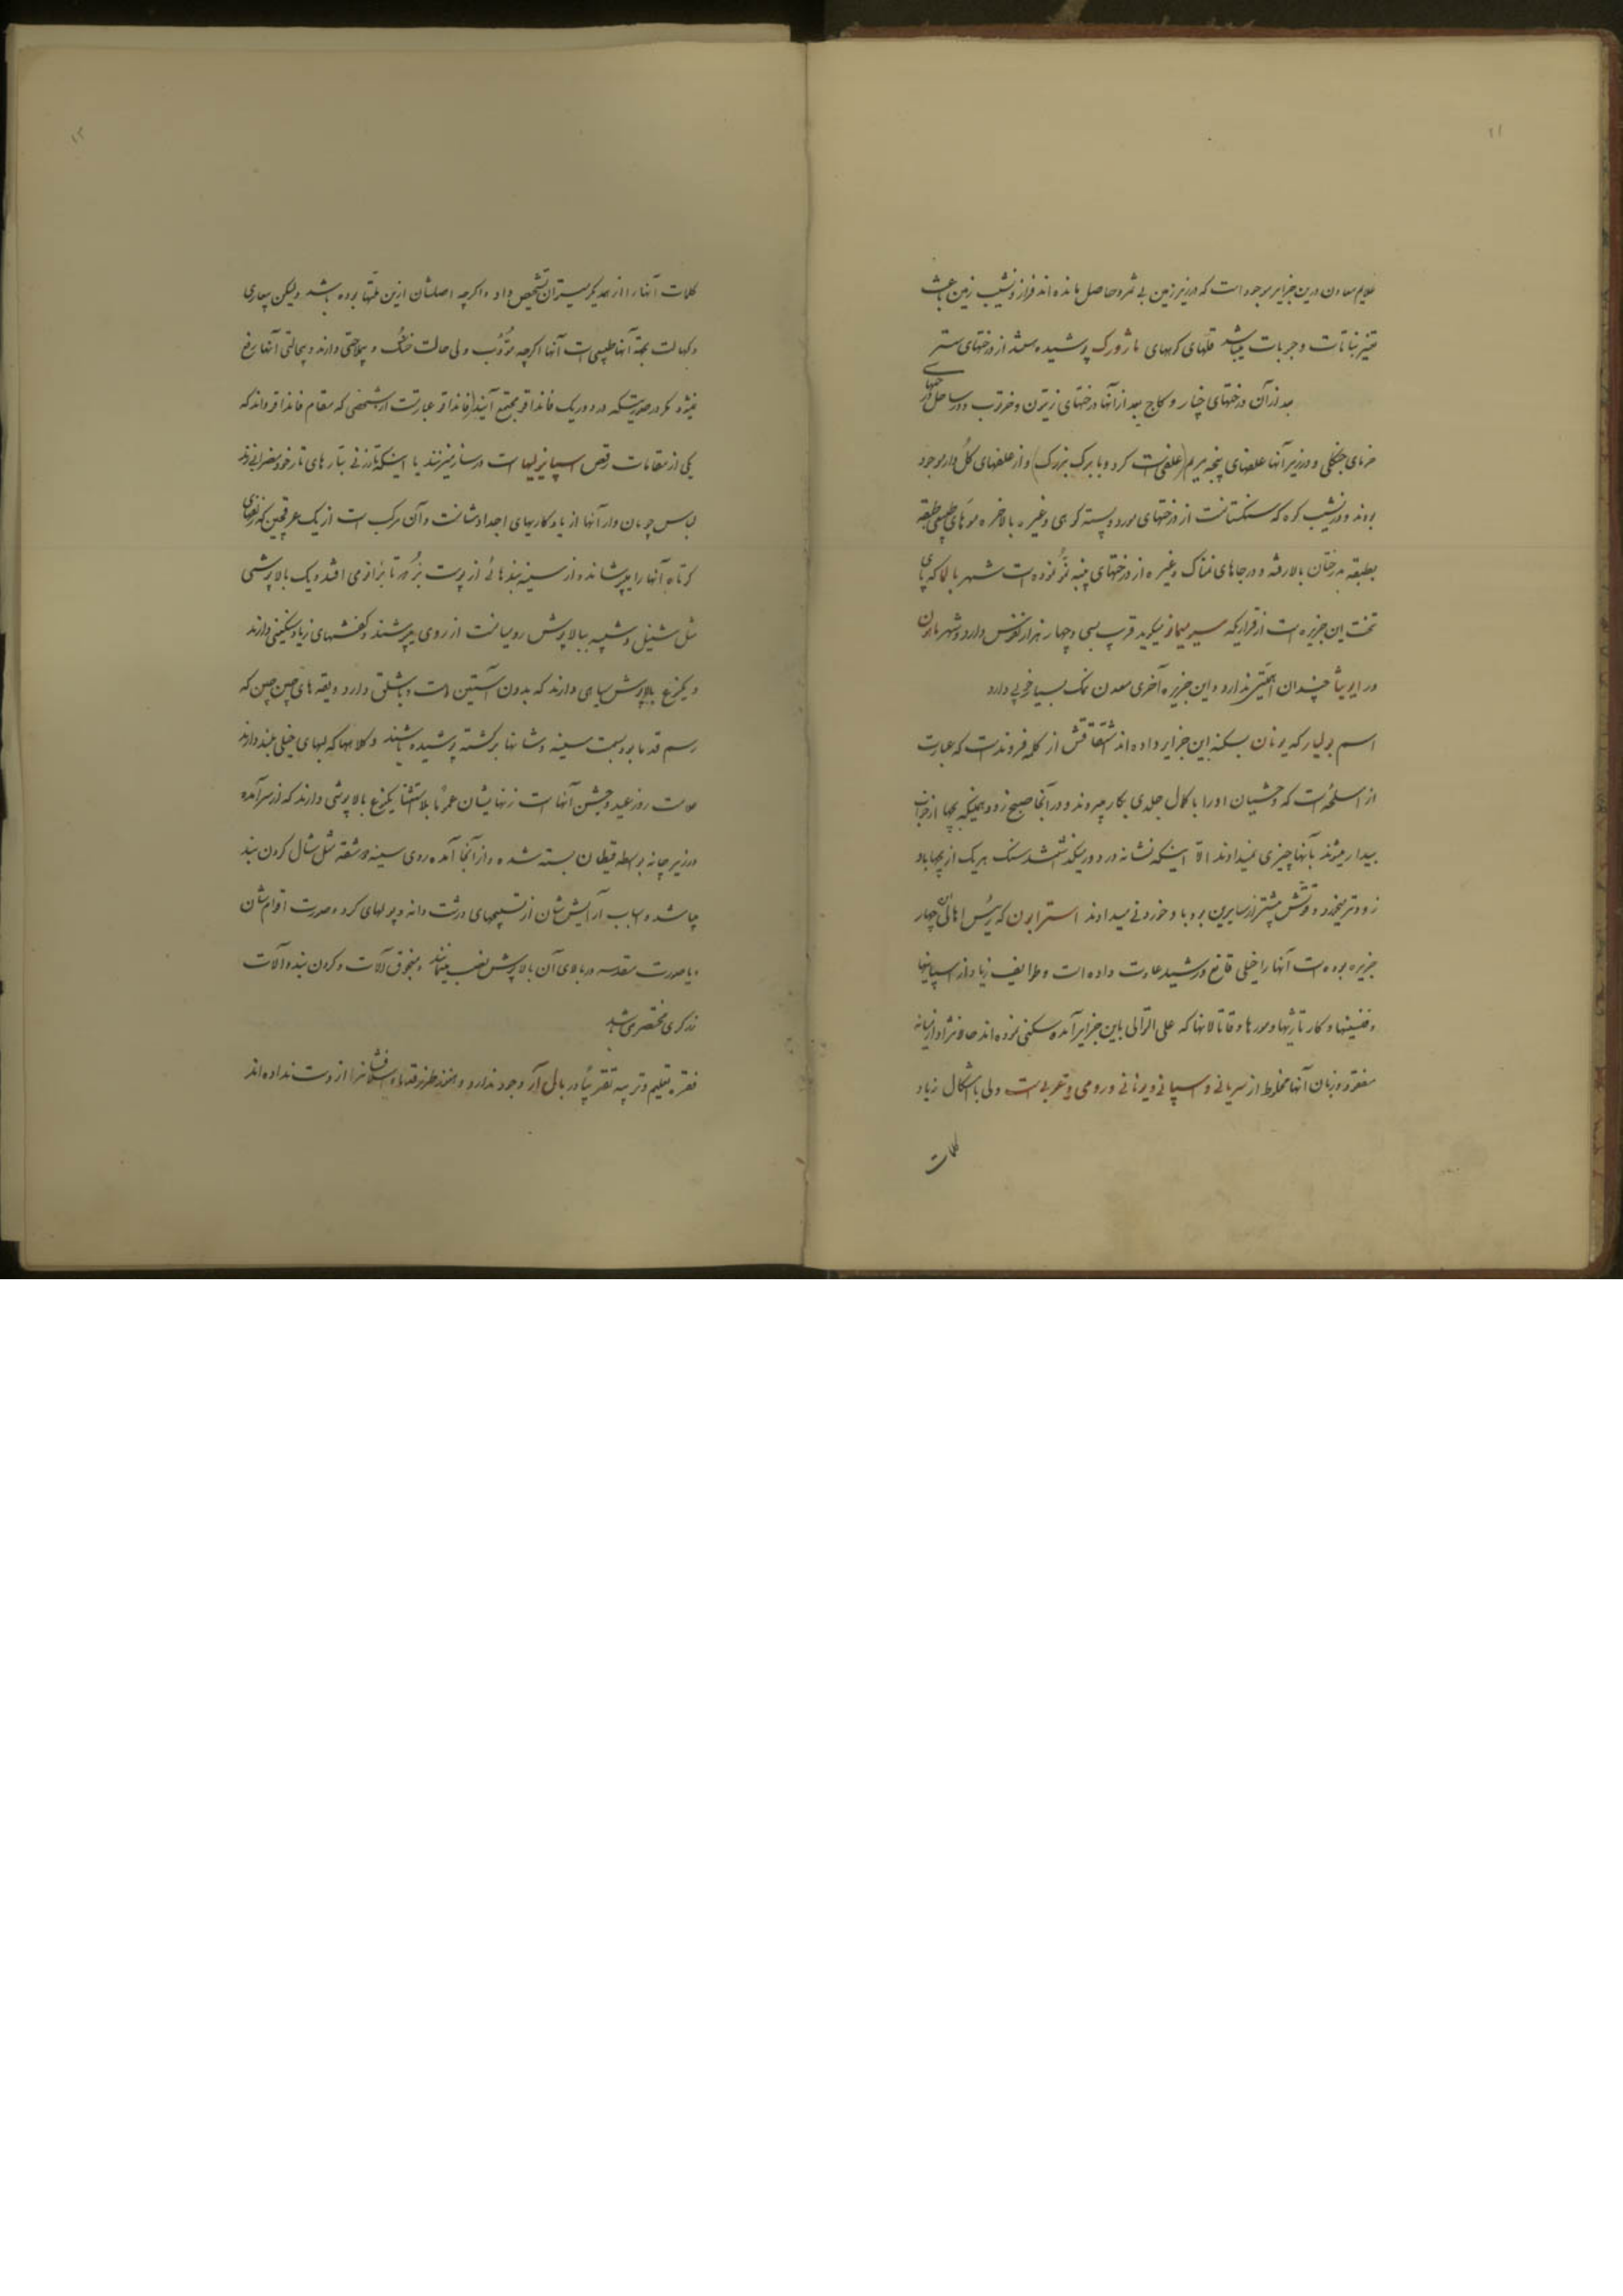 ۱۱
علایم معادن درین جزایر موجود است که در زیر زمین بی ثمر و حاصل مانده اند فراز و نشیب زمین باعث
تغییر نباتات و حبوبات میباشد قلهای کوههای ماژورک پوشیده هستند از درختهای ستبر
بعد از آن درختهای چنار و کاج بعد از آنها درختهای زیتون و خرنوب و در ساحل درختهای
خرمای جنگلی و در زیر آنها علفهای پنجه مریم (علفی است گرد و با برگ بزرگ) و از علفهای گل دار موجود
بوند و در نشیب کوه که سنگستانست از درختهای مورد و پسته کوهی و غیره بالاخره موهای طبیعی طبقه
بطبقه بدرختان بالا رفته و در جاهای نمناک و غیره از درختهای پنبه نمو نموده است شهر پالما که پای
تخت این جزیره است از قراریکه مسیو میماز میگوید قریب بسی و چهار هزار نفوس دارد و شهر ماهون
در ایویثا چندان اهمیتی ندارد و این جزیره آخری معدن نمک بسیار خوبی دارد
اسم بولیار که یونان بسکنه این جزایر داده اند اشتقاقش از کلمه فروندست که عبارت
از اسلحه است که وحشیان او را با کمال جلدی بکار میبردند و در آنجا صبح زود همینکه بچها از خواب
بیدار میشوند بآنها چیزی نمیدادند الا اینکه نشانه در دور میگذاشتند سنگ هر یک از بچها باو
زودتر میخورد و قوتش بیشتر از سایرین بود باو خوردنی میدادند استرابون که رئیس اهالی این چهار
جزیره بوده است آنها را خیلی قانع و رشید عادت داده است و طوایف زیاد از اسپانیها
و فنیسینها و کارتاژنیها و مورها و قاتالانها که علی التوالی باین جزایر آمده سکنی نموده اند حالا نژاد از میانه
مفقود و زبان آنها مخلوط از سریانی و اسپانی و یونانی و رومی و عربی است ولی با اشکال زیاد
کلمات
۱۲
کلمات آنها را از همدیگر میتوان تشخیص داد و اگرچه اصلشان ازین ملتها بوده باشد ولیکن بیعاری
و کهالت بجهة آنها طبیعی است آنها اگرچه مؤدب ولی حالت خشک و بیواحتی دارند و بیحالتی آنها رفع
نمیشود مگر در صورتیکه در دور یک فانداقو مجتمع آیند (فانداقو عبارتست از شخصی که مقام فانداقو داند که
یکی از مقامات رقص اسپانیولیها است در ساز میزنند یا اینکه تارزنی بتارهای تار خود مضرابی زند
لباس چوپان وار آنها از یادگاریهای اجدادشانست و آن مرکب است از یک عرقچین که زلفهای
کوتاه آنها را میپوشاند و از سینه بندهائی از پوست بز که در تا بزانو می افتد و یک بالاپوشی
مثل شنیل و شبیه ببالاپوش روسیانست از روی میپوشند و کفشهای زیاد سنگینی دارند
و یکنوع بالاپوش سیاهی دارند که بدون آستین است و باشلق دارد و یقه های چین چین که
رسم قدما بود بسمت سینه و شانها برگشته پوشیده باشند و کلاهها که لبهای خیلی بلند دارند
علامت روز عید و جشن آنها است زنهایشان عموماً بلااستثنا یکنوع بالاپوشی دارند که از سر آمده
در زیر چانه بواسطه قیطان بسته شده و از آنجا آمده روی سینه دو شقه مثل شال گردن بند
میباشد و اسباب آرایش شان از تسبیحهای درشت دانه و پولهای گرد و صورت اقوام شان
و یا صورت مقدسه در بالای آن بالاپوش نصب مینمایند و منجوق آلات و گردن بند و آلات
زرگری مختصری باشد
فقره تعلیم و تربیه تقریباً در بال آر وجود ندارد و هنوز طرز قدما و اسلافشانرا از دست نداده اند